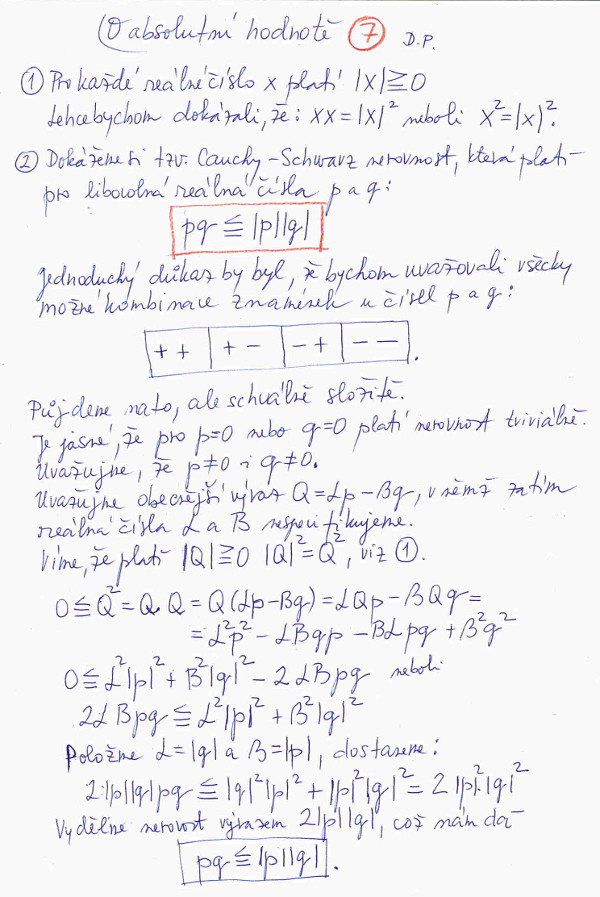 O absolutní hodnotě 7 D.P.
1 Pro každé reálné číslo x platí |x| ≧ 0
Lehce bychom dokázali, že: xx = |x|² neboli x² = |x|².
2 Dokážeme si tzv. Cauchy-Schwarz nerovnost, která platí
pro libovolná reálná čísla p a q:
pq ≦ |p||q|
Jednoduchý důkaz by byl, že bychom uvažovali všecky
možné kombinace znamének u čísel p a q:
+ + | + − | − + | − − .
Půjdeme na to, ale schválně složitě.
Je jasné, že pro p=0 nebo q=0 platí nerovnost triviálně.
Uvažujme, že p≠0 i q≠0.
Uvažujme obecnější výraz Q = αp − βq, v němž zatím
reálná čísla α a β nespecifikujeme.
Víme, že platí |Q| ≧ 0 |Q|² = Q², viz 1.
0 ≦ Q² = Q.Q = Q(αp − βq) = αQp − βQq =
= α²p² − αβqp − βαpq + β²q²
0 ≦ α²|p|² + β²|q|² − 2αβpq neboli
2αβpq ≦ α²|p|² + β²|q|²
Položme α = |q| a β = |p|, dostaneme:
2.|p||q|pq ≦ |q|²|p|² + |p|²|q|² = 2|p|².|q|²
Vydělme nerovost výrazem 2|p||q|, což nám dá
pq ≦ |p||q| .